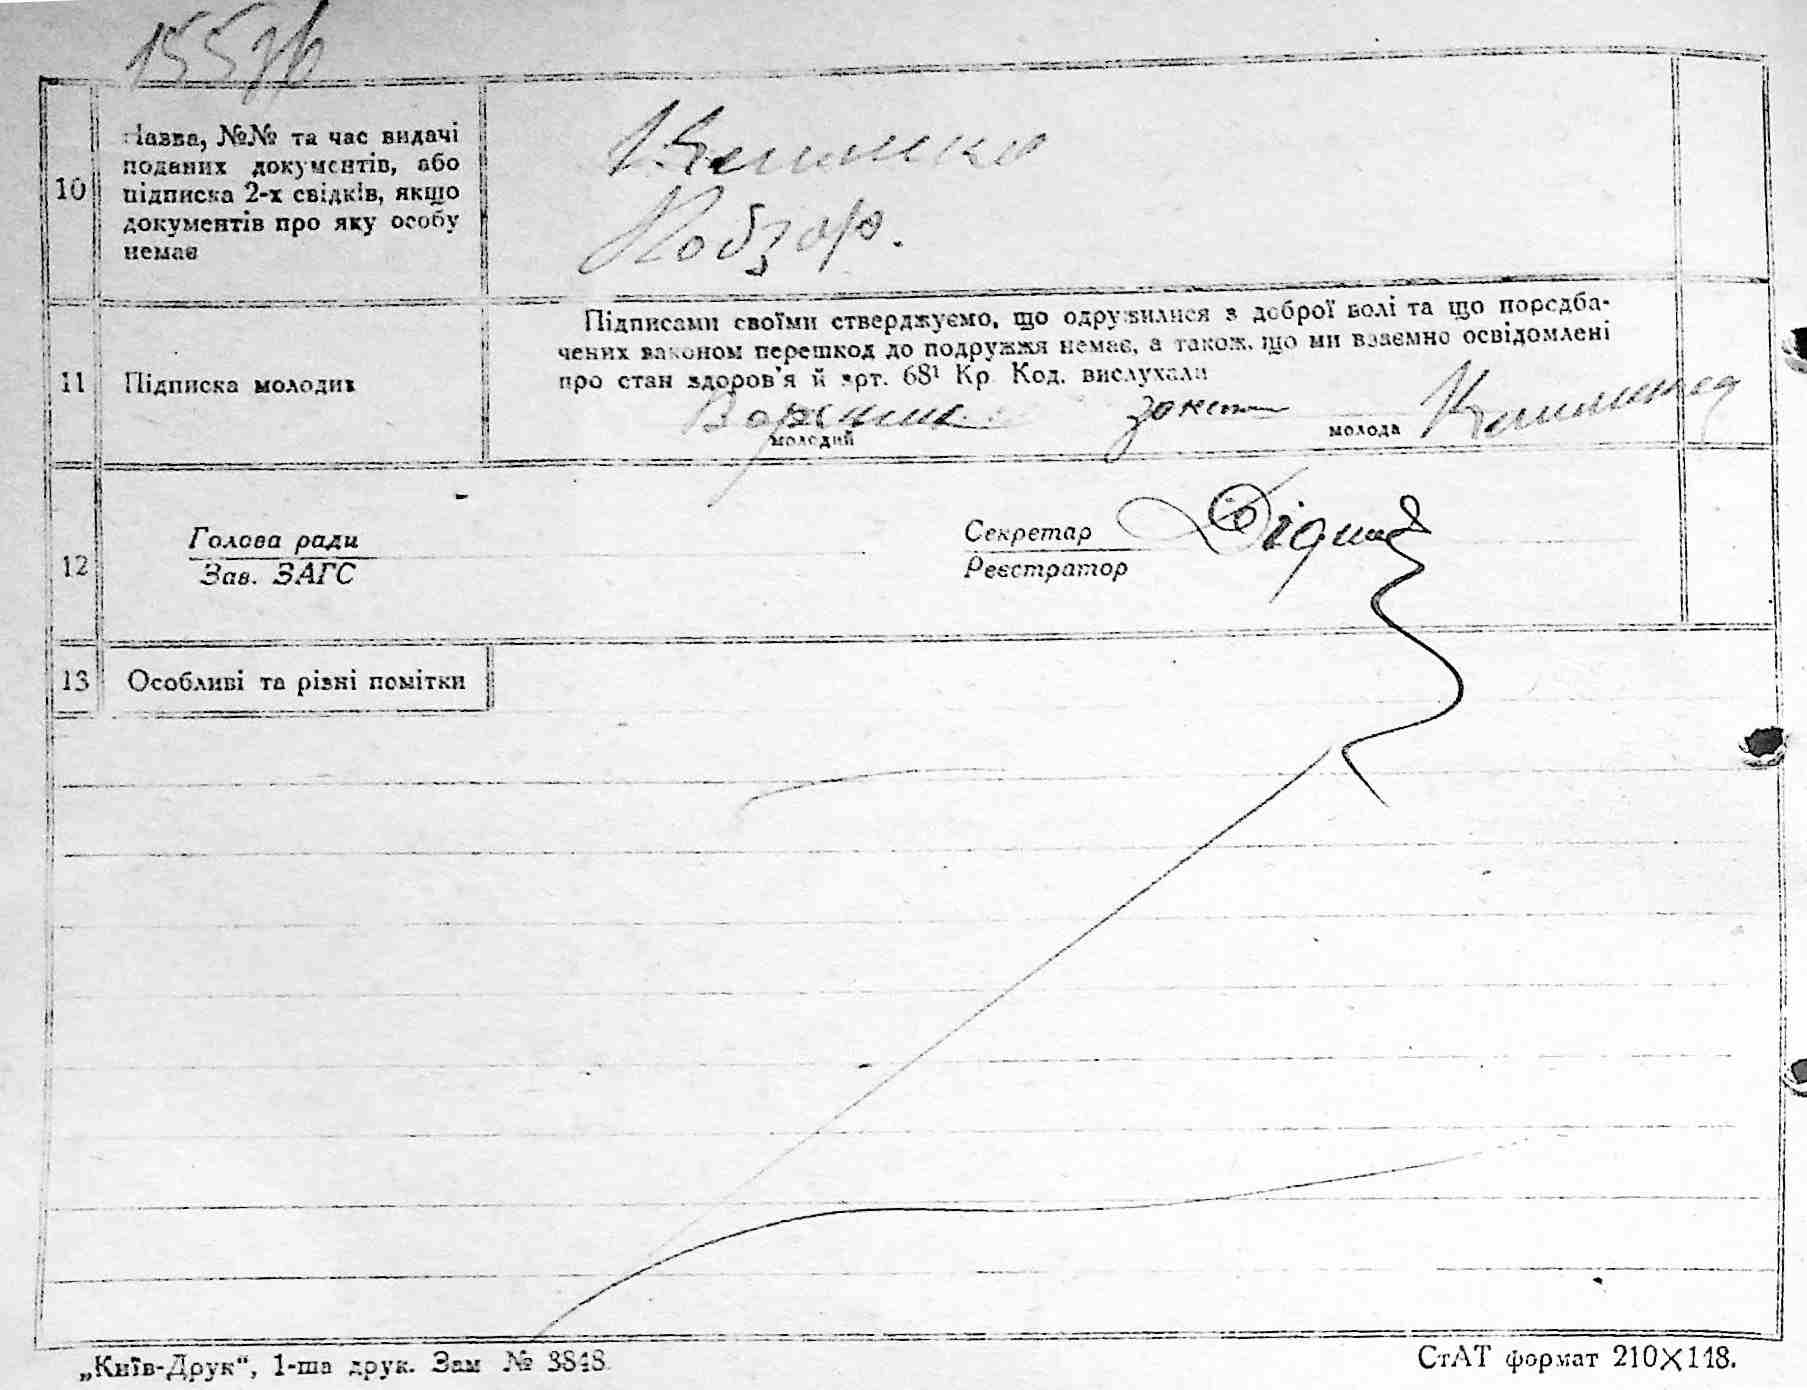 155зв
10
Назва, №№ та час видачі
поданих документів, або
підписка 2-х свідків, якщо
документів про яку особу
немає
Кобзар.
11
Підписка молодих
Підписами своїми стверджуємо, що одружилися з доброї волі та що передба-
чених законом перешкод до подружжя немає, а також, що ми взаємно освідомлені
про стан здоров'я й арт. 68¹ Кр. Код. вислухали
молодий
молода
12
Голова ради
Зав. ЗАГС
Секретар
Реєстратор
13
Особливі та різні помітки
„Київ-Друк“, 1-ша друк. Зам № 3848
СтАТ формат 210×148.